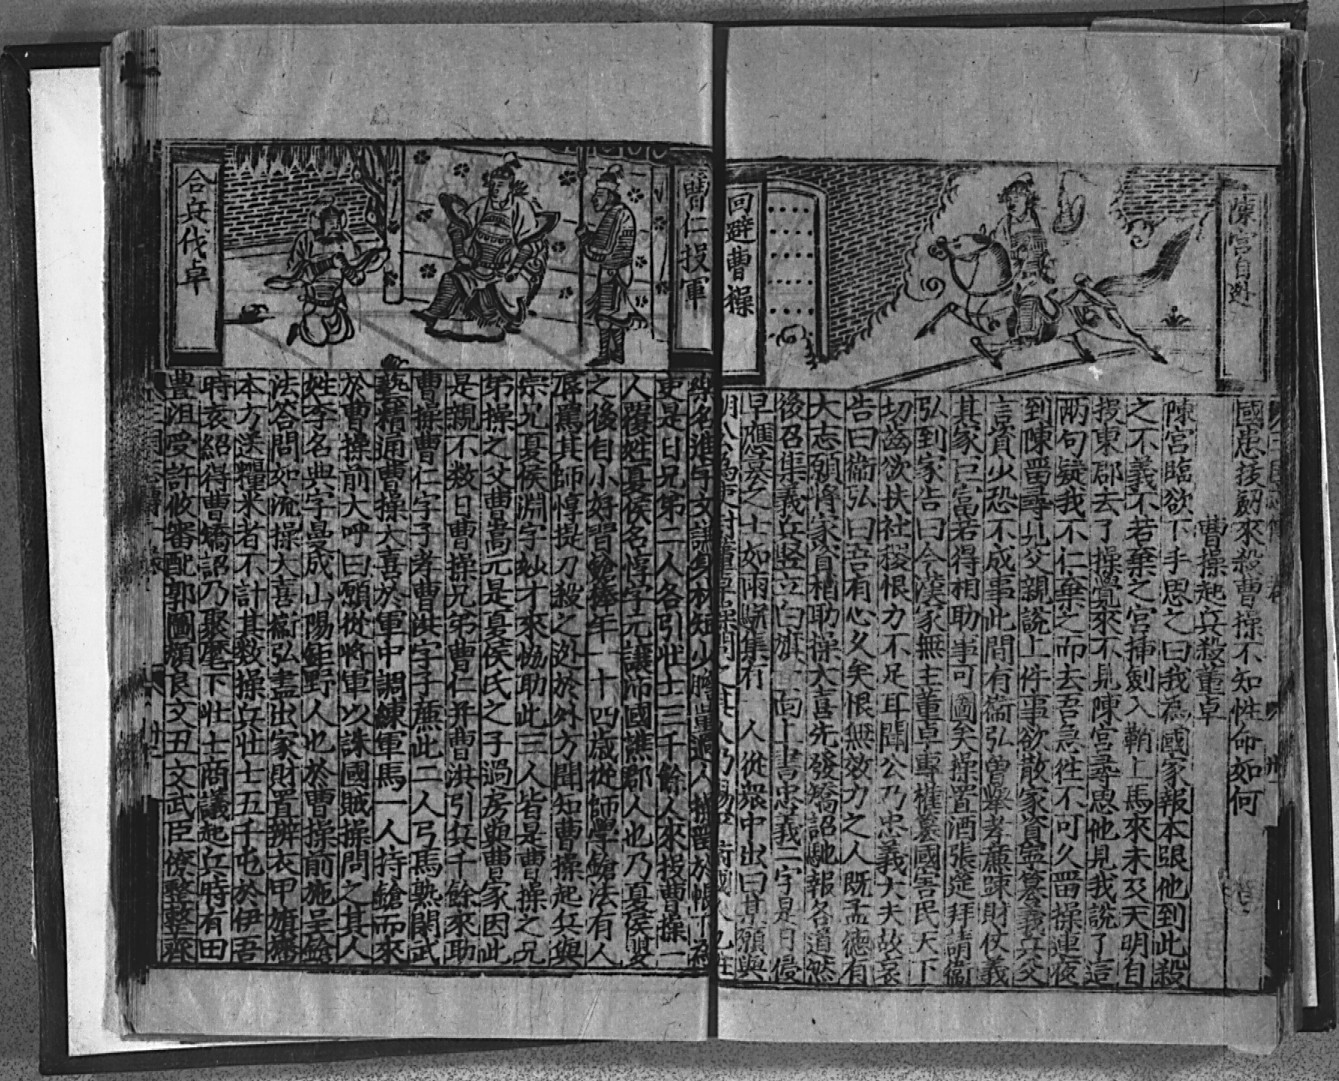 陳宮自避
回避曹操
國患拔劔來殺曹操不知性命如何
曹操起兵殺董卓
陳宮臨欲下手思之曰我爲國家報本跟他到此殺
之不義不若棄之宮揷劍入鞘上馬來未及天明自
投東郡去了操覺來不見陳宮尋思他見我說了這
兩句疑我不仁棄之而去吾急徃不可久畱操連夜
到陳畱尋見父親說上件事欲散家資盆募義兵父
言資少恐不成事此間有衞弘曾舉孝廉踈財仗義
其家巨富若得相助事可圖矣操置酒張筵拜請衞
弘到家告曰今漢家無主董卓專權纂國害民天下
切齒欲扶社稷恨力不足耳聞公乃忠義大夫故哀
告曰衞弘曰吾有心久矣恨無效力之人旣孟德有
大志願將家資相助操大喜先發矯詔馳報各道然
後召集義兵竪立白旗一面上書忠義二字是日侵
早應募之士如雨駢集有一人從衆中出曰某願與
曹仁投軍
合兵伐卓
樂名進字文謙
吏是日兄弟二人各引壯士三千餘人來投曹操一
人覆姓夏侯名惇字元讓沛國譙郡人也乃夏侯嬰
之後自小好習鎗棒年一十四歲從師學鎗法有人
辱罵其師惇提刀殺之迯於外方聞知曹操起兵與
宗兄夏侯淵字妙才來協助此三人皆是曹操之兄
弟操之父曹嵩元是夏侯氏之子過房與曹家因此
是親不数日曹操兄弟曹仁幷曹洪引兵千餘來助
曹操曹仁字子孝曹洪字子廉此二人弓馬熟閑武
藝精通曹操大喜於軍中調練軍馬一人持鎗而來
於曹操前大呼曰願從將軍以誅國賊操問之其人
姓李名典字曼成山陽鉅野人也於曹操前施呈鎗
法答問如流操大喜衞弘盡出家財置辨衣甲旗旛
本方送糧米者不計其数操兵壯士五千屯於伊吾
時袁紹得曹矯詔乃聚麾下壯士商議起兵時有田
豊沮受許攸審配郭圖顏良文丑文武臣僚整整齊